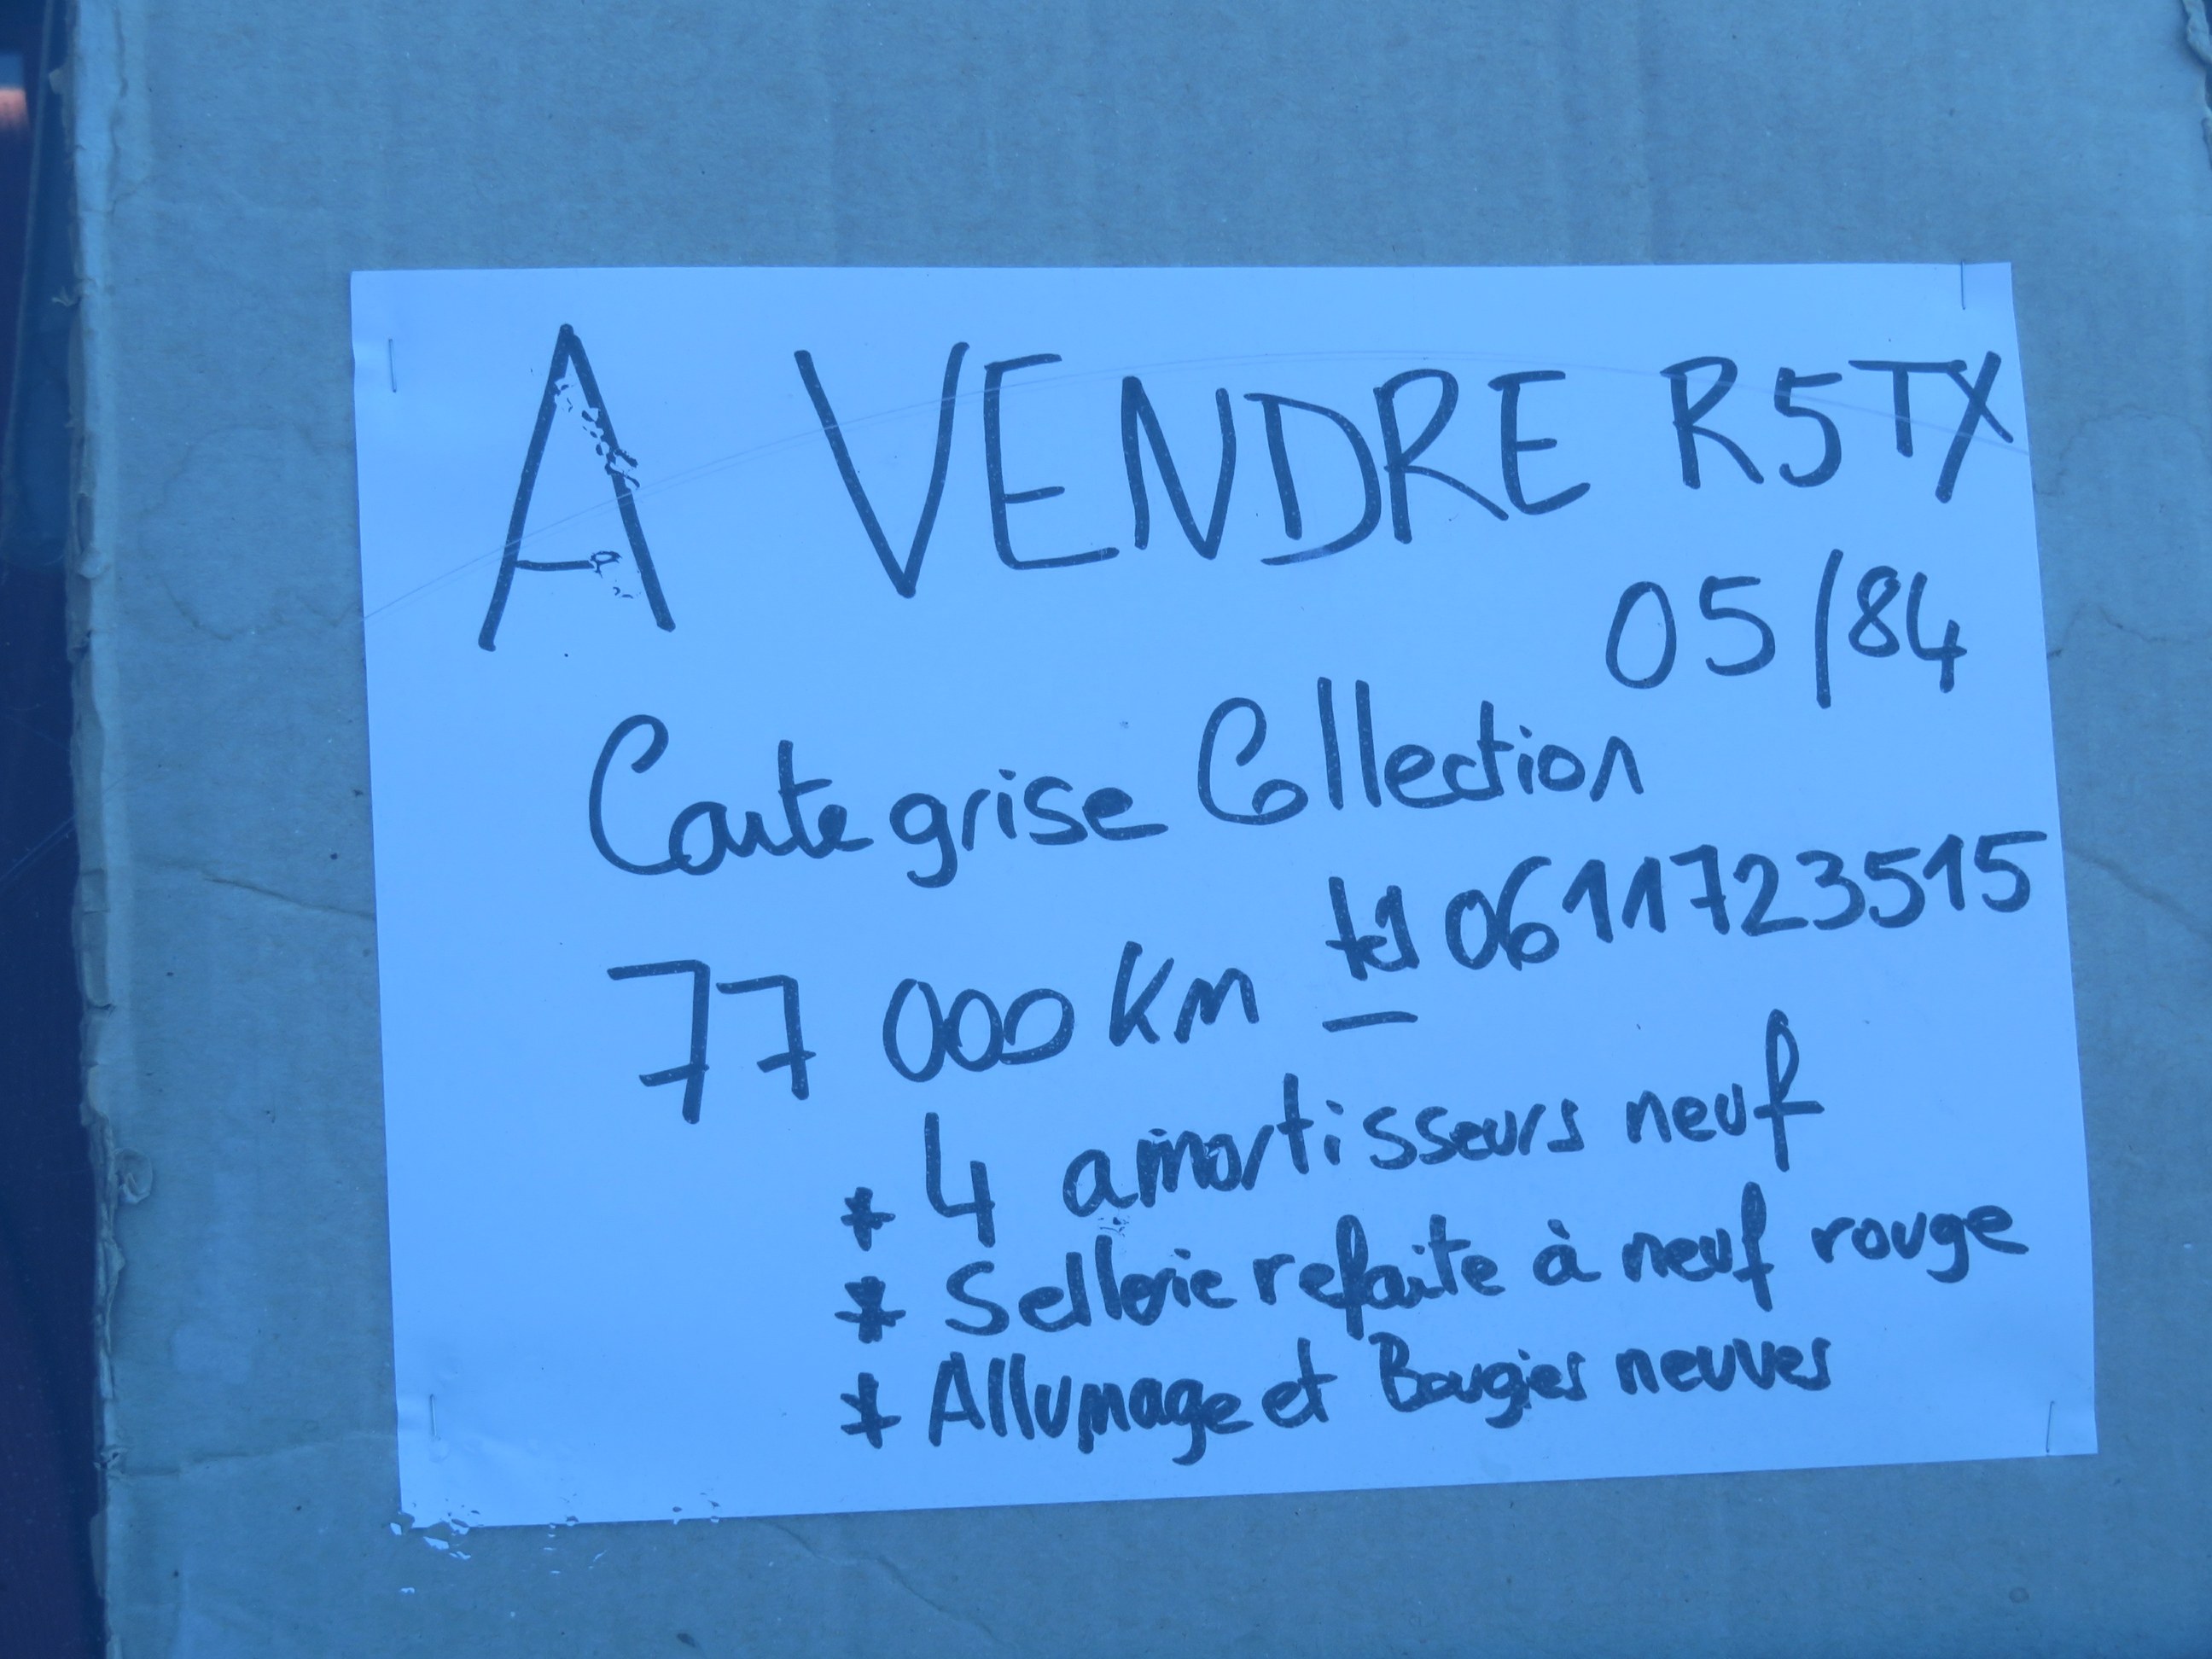 A VENDRE R5TX
05/84
Carte grise Collection
77 000 Km tel 0611723515
* 4 amortisseurs neuf
* Sellerie refaite à neuf rouge
* Allumage et Bougies neuves